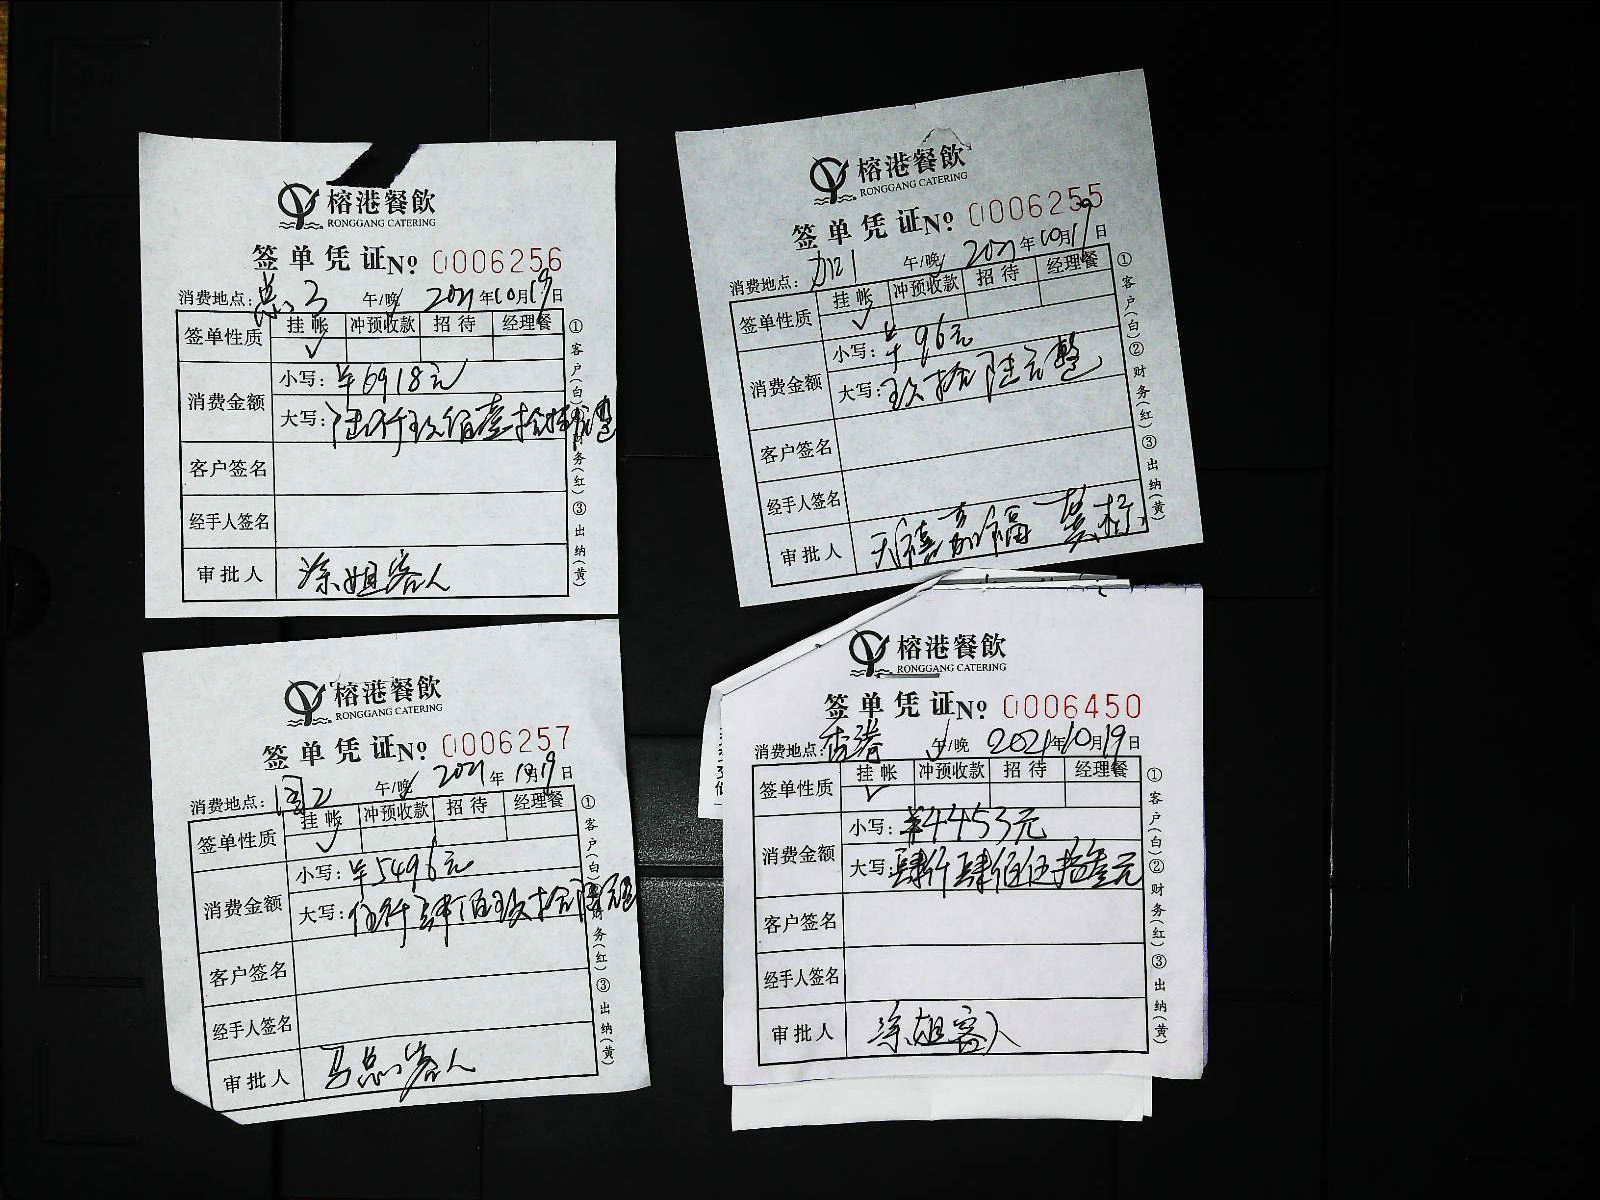 榕港餐飲
RONGGANG CATERING
签单凭证№ 0006256
消费地点：总3 午/晚 2021年10月19日
签单性质 挂帐 冲预收款 招待 经理餐
✓
消费金额 小写：¥6918元
大写：陆仟玖佰壹拾捌元整
客户签名
经手人签名
审批人 涂姐客人
①客户(白)②财务(红)③出纳(黄)
榕港餐飲
RONGGANG CATERING
签单凭证№ 0006255
消费地点： 午/晚 2021年10月19日
签单性质 挂帐 冲预收款 招待 经理餐
✓
消费金额 小写：¥96元
大写：玖拾陆元整
客户签名
经手人签名
审批人 天禧嘉福
①客户(白)②财务(红)③出纳(黄)
榕港餐飲
RONGGANG CATERING
签单凭证№ 0006257
消费地点： 午/晚 2021年10月19日
签单性质 挂帐 冲预收款 招待 经理餐
✓
消费金额 小写：¥5496元
大写：伍仟肆佰玖拾陆元整
客户签名
经手人签名
审批人 马总客人
①客户(白)②财务(红)③出纳(黄)
榕港餐飲
RONGGANG CATERING
签单凭证№ 0006450
消费地点：香港 午/晚 2021年10月19日
签单性质 挂帐 冲预收款 招待 经理餐
✓
消费金额 小写：¥4453元
大写：肆仟肆佰伍拾叁元
客户签名
经手人签名
审批人 涂姐客人
①客户(白)②财务(红)③出纳(黄)